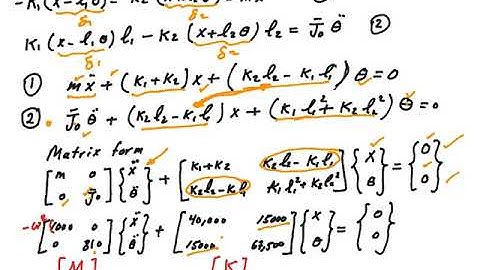 -K₁(x-l₁θ) - K₂(x+l₂θ) = mẍ
δ₁ δ₂
K₁(x-l₁θ)l₁ - K₂(x+l₂θ)l₂ = J̄₀ θ̈ ②
δ₁ δ₂
① mẍ + (K₁+K₂)x + (K₂l₂-K₁l₁)θ=0
② J̄₀ θ̈ + (K₂l₂-K₁l₁)x + (K₁l₁²+K₂l₂²)θ=0
Matrix form
[m 0 {ẍ + [K₁+K₂ K₂l₂-K₁l₁ {x = {0
0 J̄₀] θ̈} K₂l₂-K₁l₁ K₁l₁²+K₂l₂²] θ} 0}
-ω² [1000 0 {ẍ + [40,000 15000 {x = {0
0 810] θ̈} 15000 62,500] θ} 0}
[M] [K]